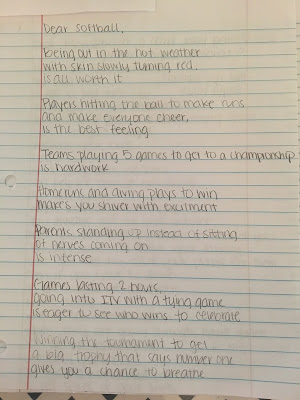 Dear Softball,
Being out in the hot weather
with skin slowly turning red,
is all worth it
Players hitting the ball to make runs
and make everyone cheer,
is the best feeling
Teams playing 5 games to get to a championship
is hardwork
Homeruns and diving plays to win
makes you shiver with excitment
Parents standing up instead of sitting
of nerves coming on
is intense
Games lasting 2 hours,
going into ITV with a tying game
is eager to see who wins to celebrate
Winning the tournament to get
a big trophy that says number one
gives you a chance to breathe